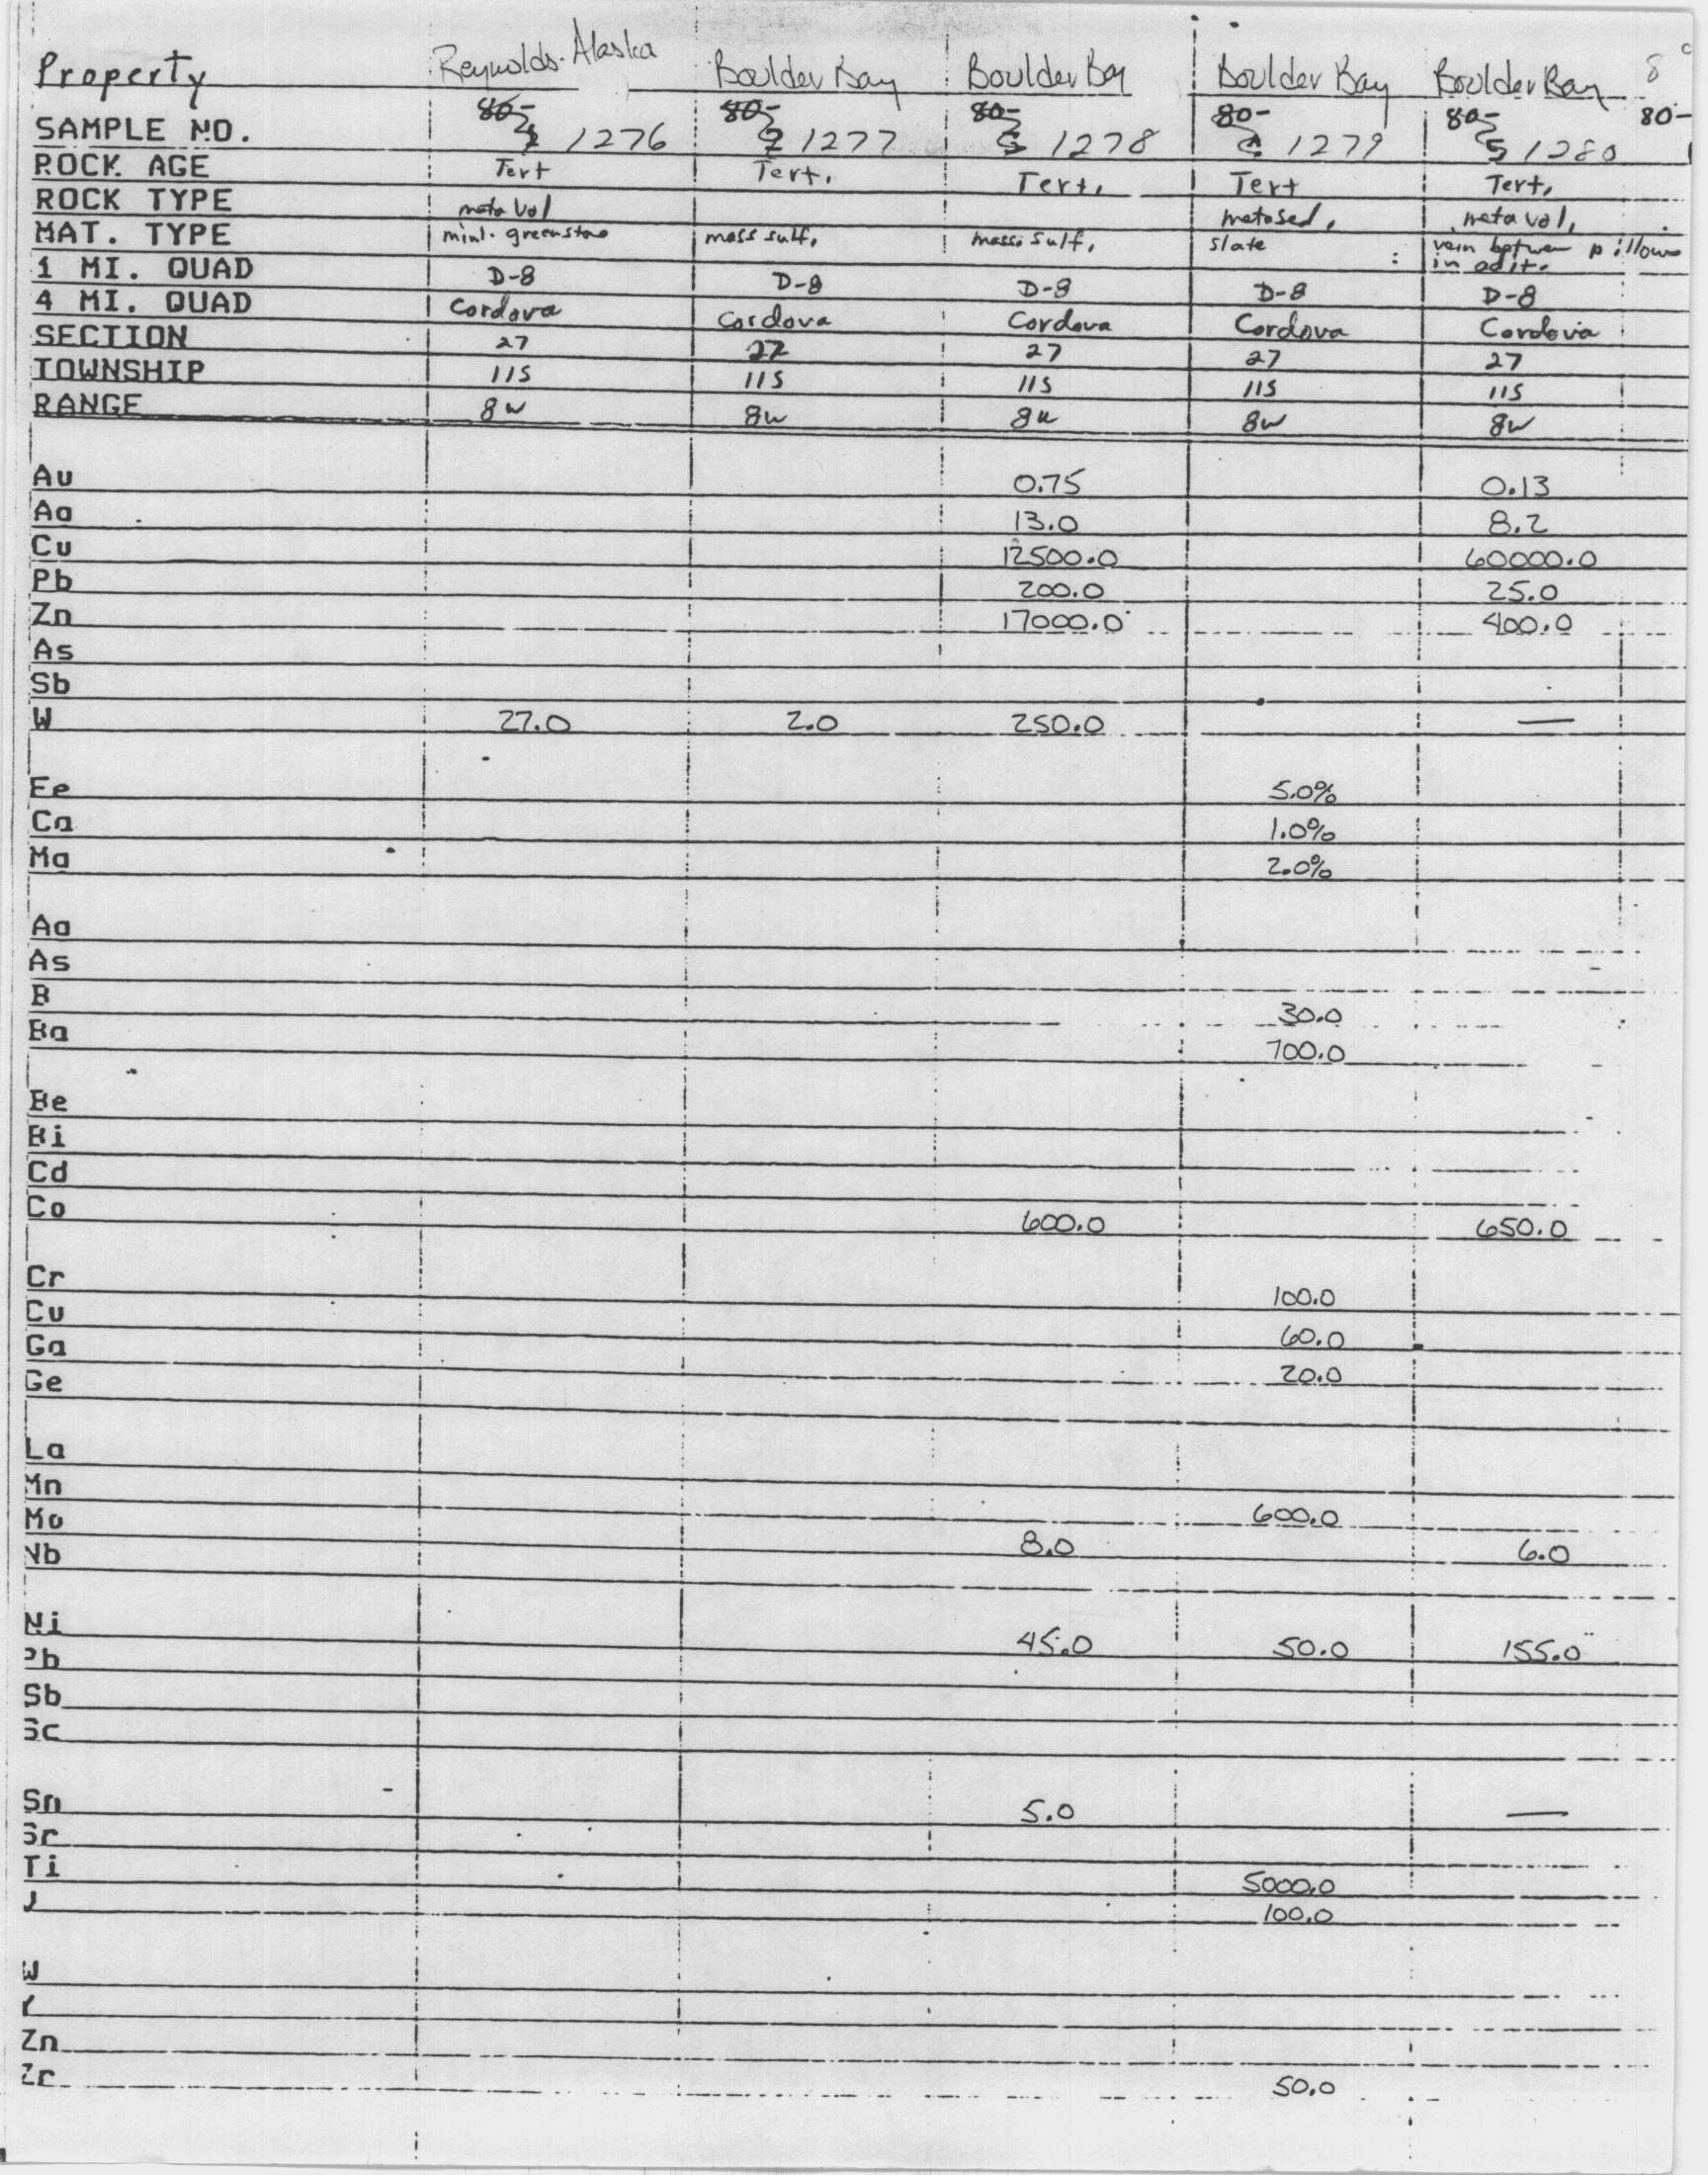 Property Reynolds-Alaska Boulder Bay Boulder Bay Boulder Bay Boulder Bay 8
SAMPLE NO. 80- 1276 80- 1277 80- 1278 80- 1279 80- 1280 80-
ROCK AGE Tert Tert. Tert. Tert Tert.
ROCK TYPE meta vol metased. meta vol.
MAT. TYPE minl. greenstone mass sulf. mass. sulf. slate vein between pillows in adit.
1 MI. QUAD D-8 D-8 D-8 D-8 D-8
4 MI. QUAD Cordova Cordova Cordova Cordova Cordova
SECTION 27 27 27 27 27
TOWNSHIP 11S 11S 11S 11S 11S
RANGE 8W 8W 8W 8W 8W
Au 0.75 0.13
Ag 13.0 8.2
Cu 12500.0 60000.0
Pb 200.0 25.0
Zn 17000.0 400.0
As
Sb
W 27.0 2.0 250.0 —
Fe 5.0%
Ca 1.0%
Mg 2.0%
Ag
As
B 30.0
Ba 700.0
Be
Bi
Cd
Co 600.0 650.0
Cr 100.0
Cu 60.0
Ga 20.0
Ge
La
Mn 600.0
Mo 8.0 6.0
Nb
Ni 45.0 50.0 155.0
Pb
Sb
Sc
Sn 5.0 —
Sr
Ti 5000.0
V 100.0
W
Y
Zn
Zr 50.0